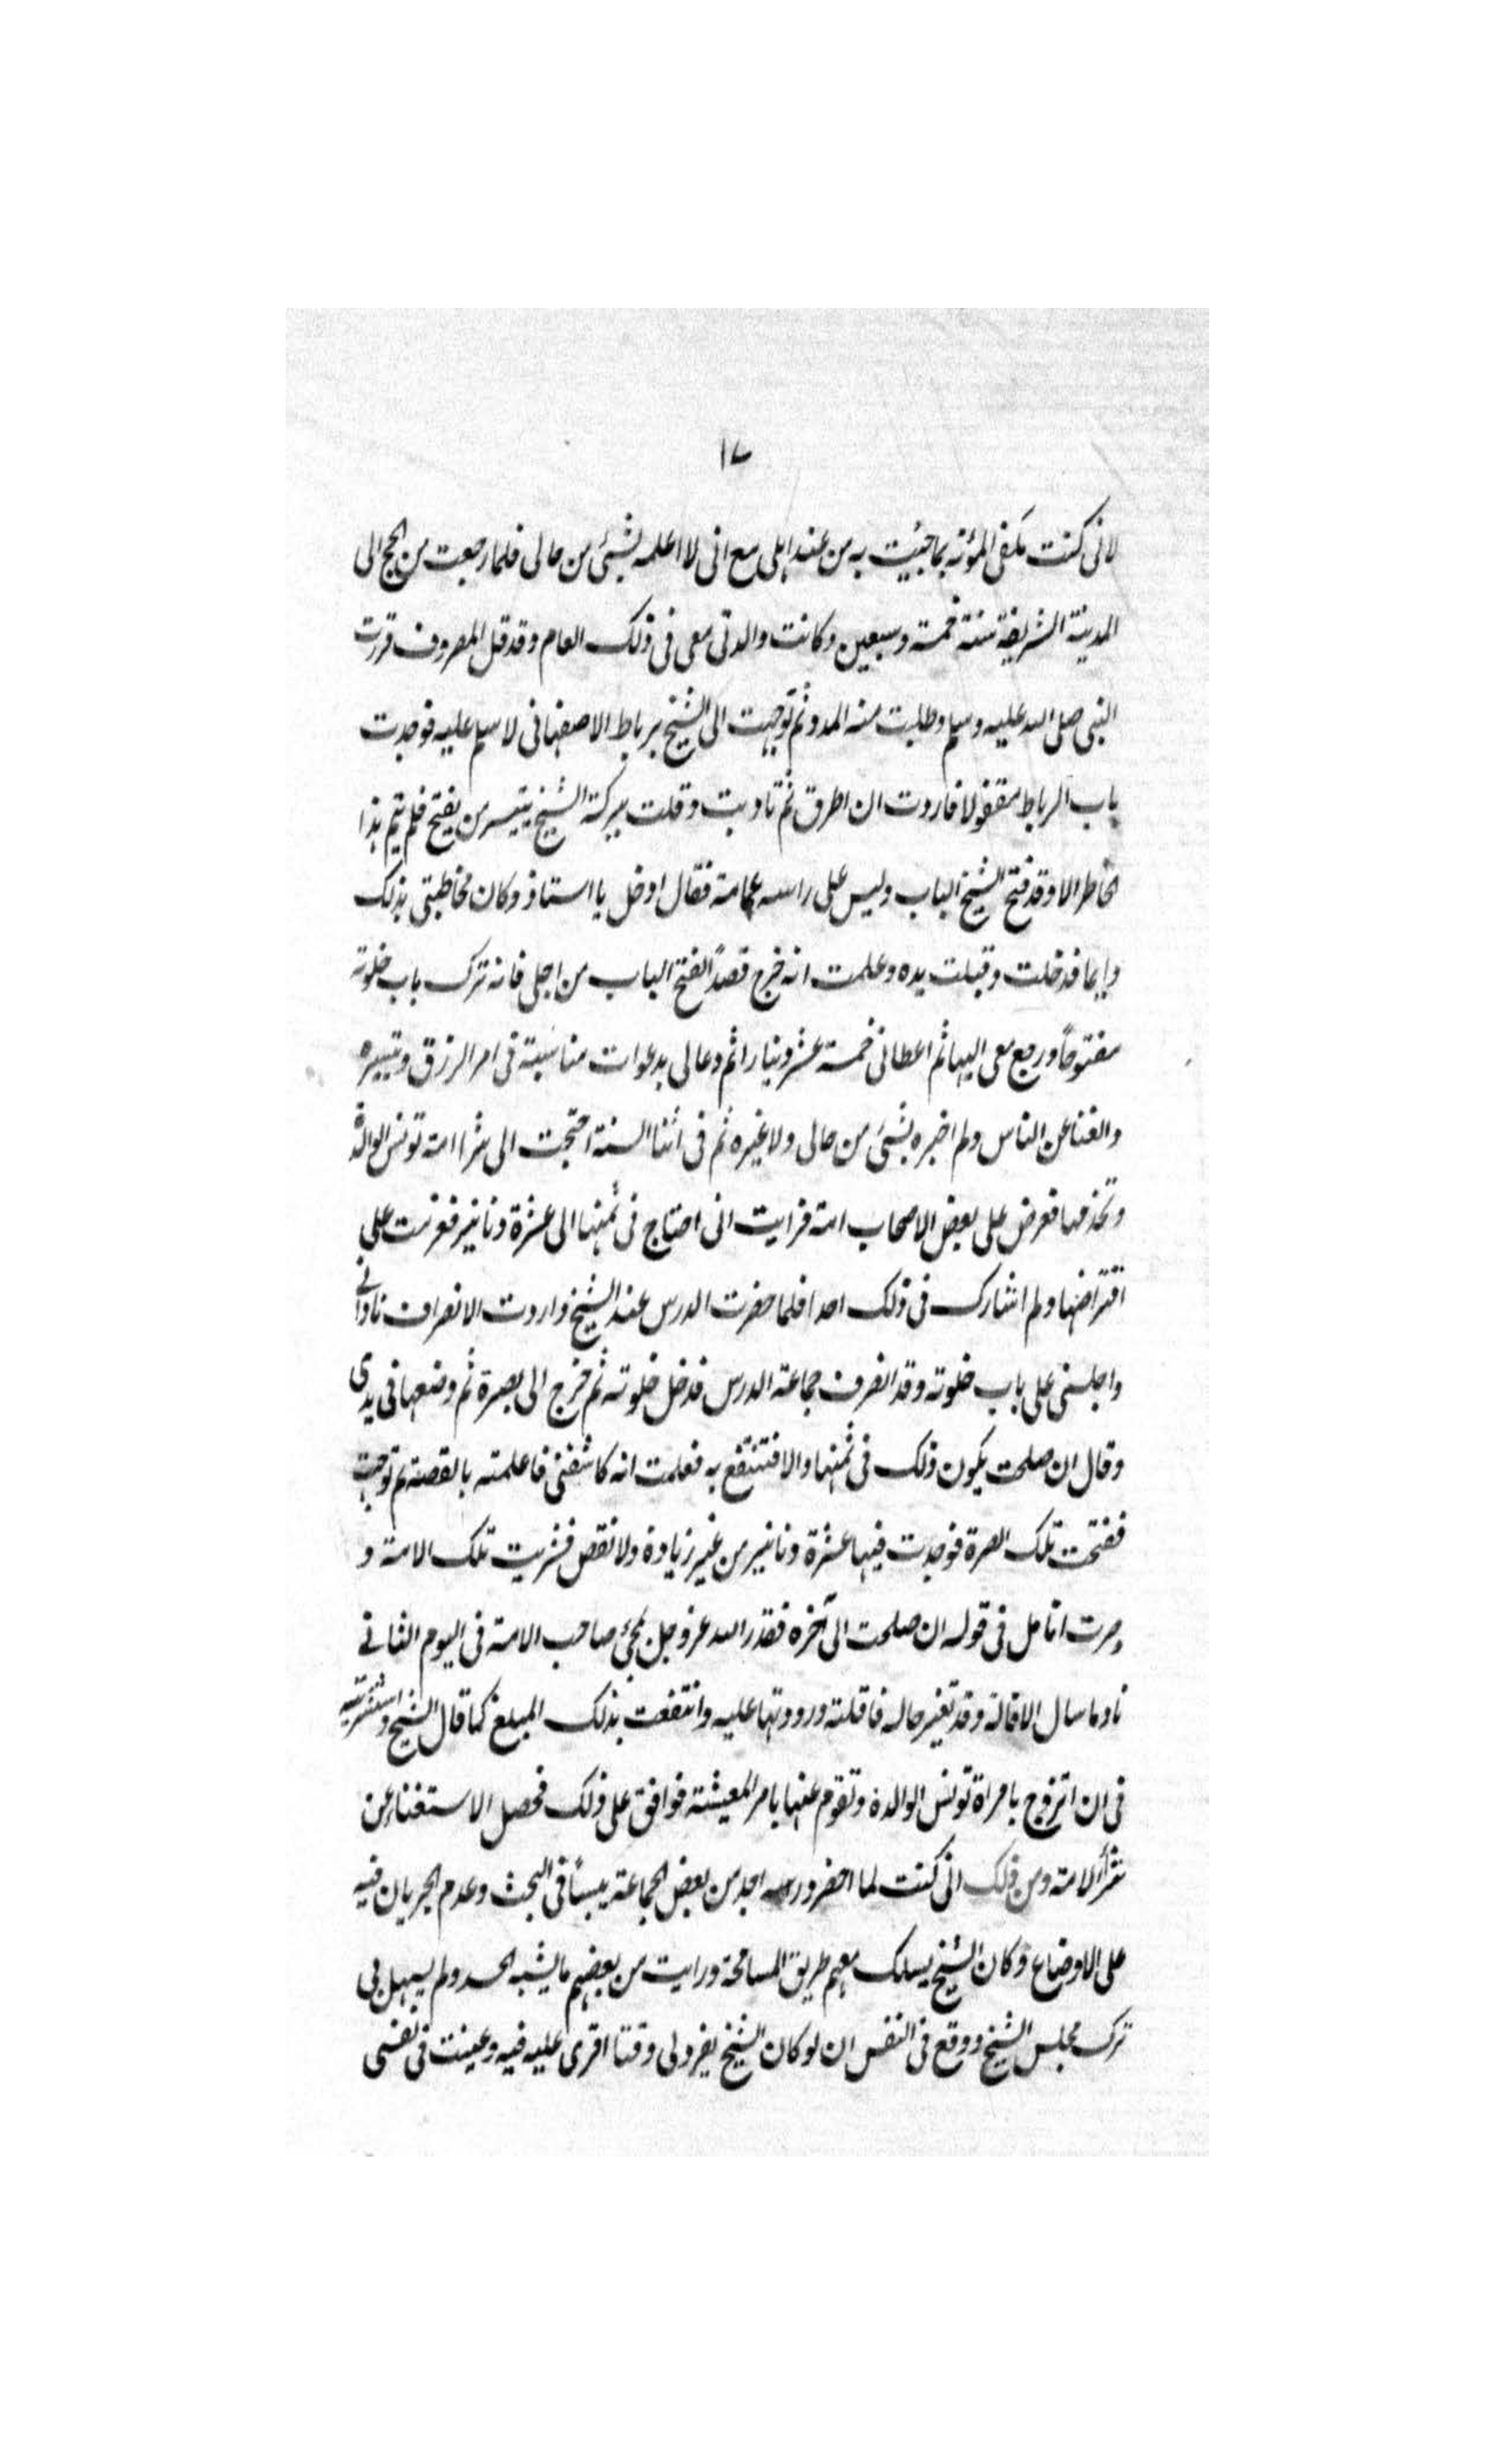 ١٧
لانى كنت مكفى المؤنة بما جئيت به من عند اهلى مع انى لا اعلمه بشئ من حالى فلما رجعت من الحج الى
المدينة الشريفة سنة خمسة وسبعين وكانت والدتى معى فى ذلك العام وقد قل المصروف فزرت
النبى صلى الله عليه وسلم وطلبت منه المدد ثم توجهت الى الشيخ برباط الاصفهانى لاسلم عليه فوجدت
باب الرباط مقفولا فاردت ان اطرق ثم تادبت وقلت ببركة الشيخ يتيسر من يفتح فلم يتم هذا
الخاطر الا وقد فتح الشيخ الباب وليس على راسه عمامة فقال ادخل يا استاذ وكان مخاطبتى بذلك
دايما فدخلت وقبلت يده وعلمت انه خرج قصدًا لفتح الباب من اجلى فانه ترك باب خلوته
مفتوحًا ورجع معى اليها ثم اعطانى خمسة عشر دينارا ثم دعا لى بدعوات مناسبة فى امر الرزق وتيسيره
والغنا عن الناس ولم اخبره بشئ من حالى ولا غيره ثم فى اثنا السنة احتجت الى شرا امة تونس الوالدة
وتخدمها فعرض على بعض الاصحاب امة فرايت انى احتاج فى ثمنها الى عشرة دنانير فعزمت على
اقتراضها ولم اشارك فى ذلك احدا فلما حضرت الدرس عند الشيخ واردت الانصراف نادانى
واجلسنى على باب خلوته وقد انصرف جماعة الدرس فدخل خلوته ثم خرج الى بصرة ثم وضعها فى يدى
وقال ان صلحت يكون ذلك فى ثمنها والا فتنتفع به فعلمت انه كاشفنى فاعلمته بالقصة ثم توجهت
ففتحت تلك الصرة فوجدت فيها عشرة دنانير من غير زيادة ولا نقص فشريت تلك الامة و
صرت اتامل فى قوله ان صلحت الى آخره فقدر الله عز وجل بمجئ صاحب الامة فى اليوم الثانى
نادما سال الاقالة وقد تغير حاله فاقلته ورددتها عليه وانتفعت بذلك المبلغ كما قال الشيخ واستشرته
فى ان اتزوج بامراة تونس الوالدة وتقوم عنها بامر المعيشة فوافق على ذلك فحصل الاستغناء عن
شراء الامة ومن ذلك انى كنت لما احضر درسه اجد من بعض الجماعة يبسًا فى البحث وعدم الجريان فيه
على الاوضاع وكان الشيخ يسلك معهم طريق المسامحة ورايت من بعضهم ما يشبه الحسد ولم يسهل بى
ترك مجلس الشيخ ووقع فى النفس ان لو كان الشيخ يفرد لى وقتا اقرى عليه فيه وعينت فى نفسى